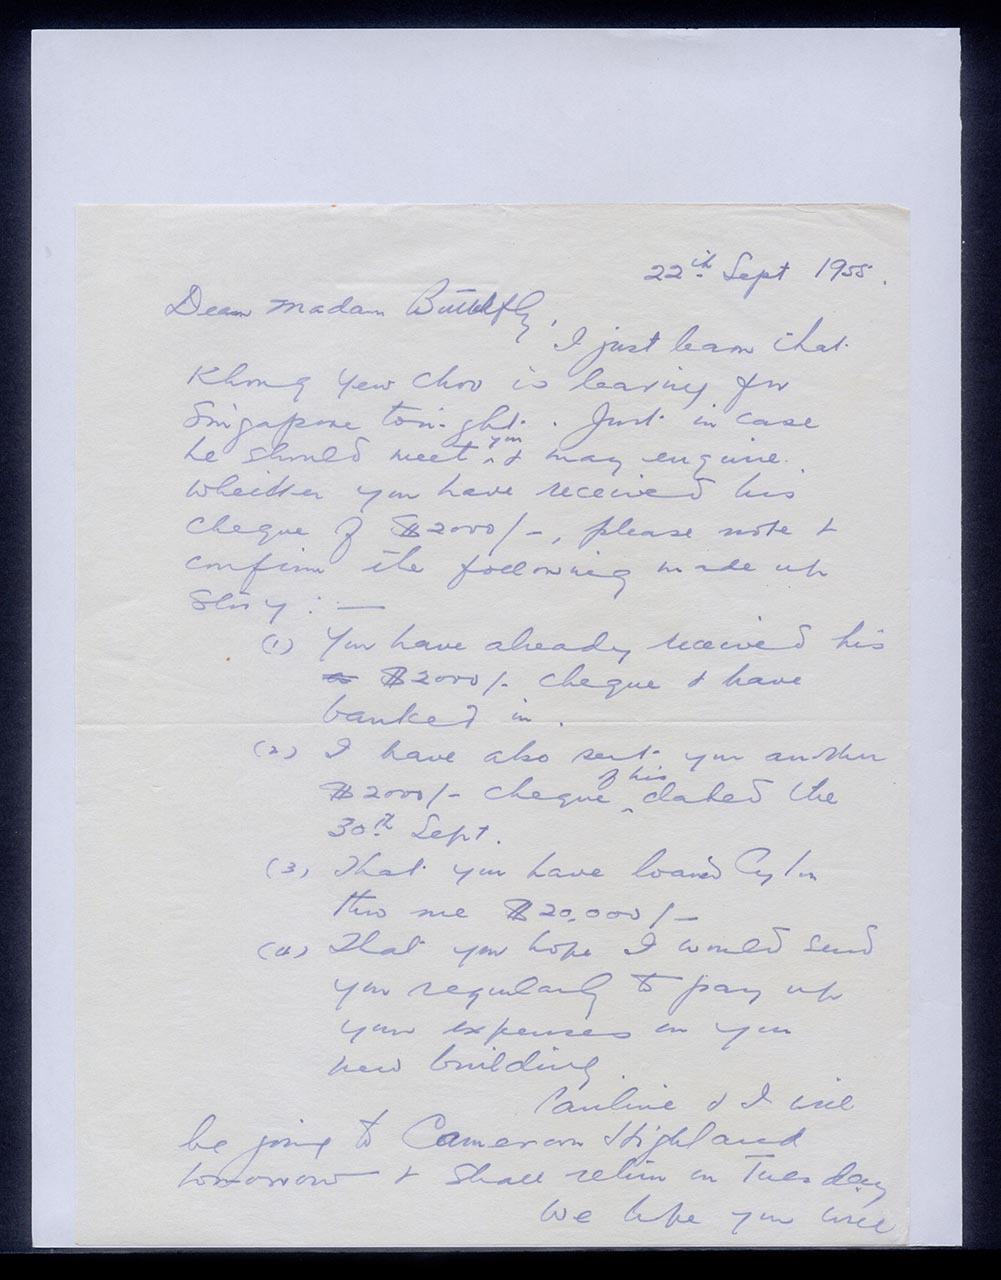 22th Sept 1955.
Dear Madam Butterfly,
I just learn that
Khong Yew Choo is leaving for
Singapore tonight. Just in case
he should meet you & may enquire
whether you have received his
cheque of $2000/-, please note &
confirm the following made up
story: —
(1) You have already received his
$2000/- cheque & have
banked in.
(2) I have also sent you another
$2000/- cheque of his dated the
30th Sept.
(3) That you have loaned
thro me $20,000/-
(4) That you hope I would send
you regularly to pay up
your expenses on your
new building.
Pauline & I will
be going to Cameron Highland
tomorrow & shall return on Tuesday
We hope you will